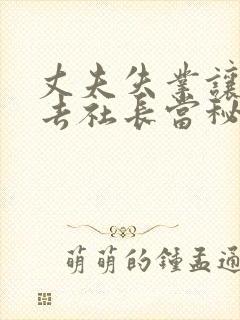 丈夫失业让
去社长当秘
萌萌的锺孟通